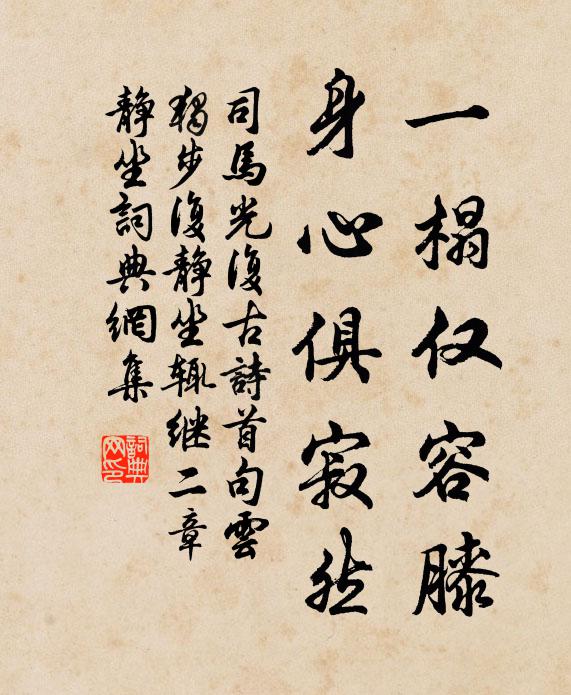 一榻仅容膝
身心俱寂然
司馬光復古詩首句雲
獨步復静坐辄继二章
静坐詞典網集
詞典网印